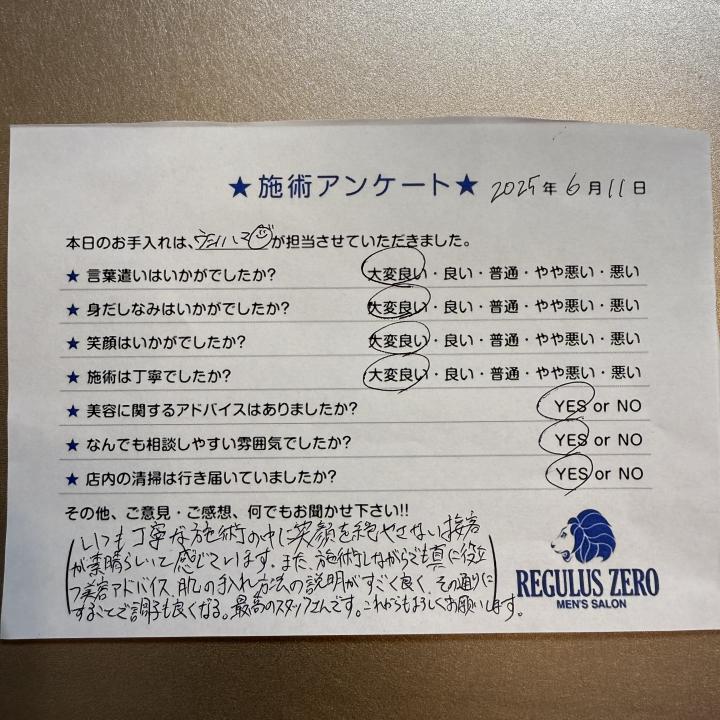 ★施術アンケート★ 2025年6月11日
本日のお手入れは、ウシハマが担当させていただきました。
★ 言葉遣いはいかがでしたか? 大変良い・良い・普通・やや悪い・悪い
★ 身だしなみはいかがでしたか? 大変良い・良い・普通・やや悪い・悪い
★ 笑顔はいかがでしたか? 大変良い・良い・普通・やや悪い・悪い
★ 施術は丁寧でしたか? 大変良い・良い・普通・やや悪い・悪い
★ 美容に関するアドバイスはありましたか? YES or NO
★ なんでも相談しやすい雰囲気でしたか? YES or NO
★ 店内の清掃は行き届いていましたか? YES or NO
その他、ご意見・ご感想、何でもお聞かせ下さい!!
いつも丁寧な施術の中に笑顔を絶やさない接客
が素晴らしいと感じています。また、施術しながらでも真に役立
つ美容アドバイス、肌の手入れ方法の説明がすごく良く、その通りに
することで調子も良くなる。最高のスタッフさんです。これからもよろしくお願いします。
REGULUS ZERO
MEN'S SALON